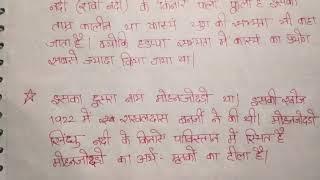 नदी (रावी नदी) के किनारे
काल कांस्य युग की सभ्यता भी कहा
जाता है। क्योंकि हड़प्पा सभ्यता में कांस्य का प्रयोग
सबसे ज्यादा किया गया था।
इसका दूसरा नाम मोहनजोदड़ो था। इसकी खोज
1922 में राखलदास बनर्जी ने की थी। मोहनजोदड़ो
सिन्धु नदी के किनारे पाकिस्तान में स्थित है
मोहनजोदड़ो का अर्थ- मृतकों का टीला है।